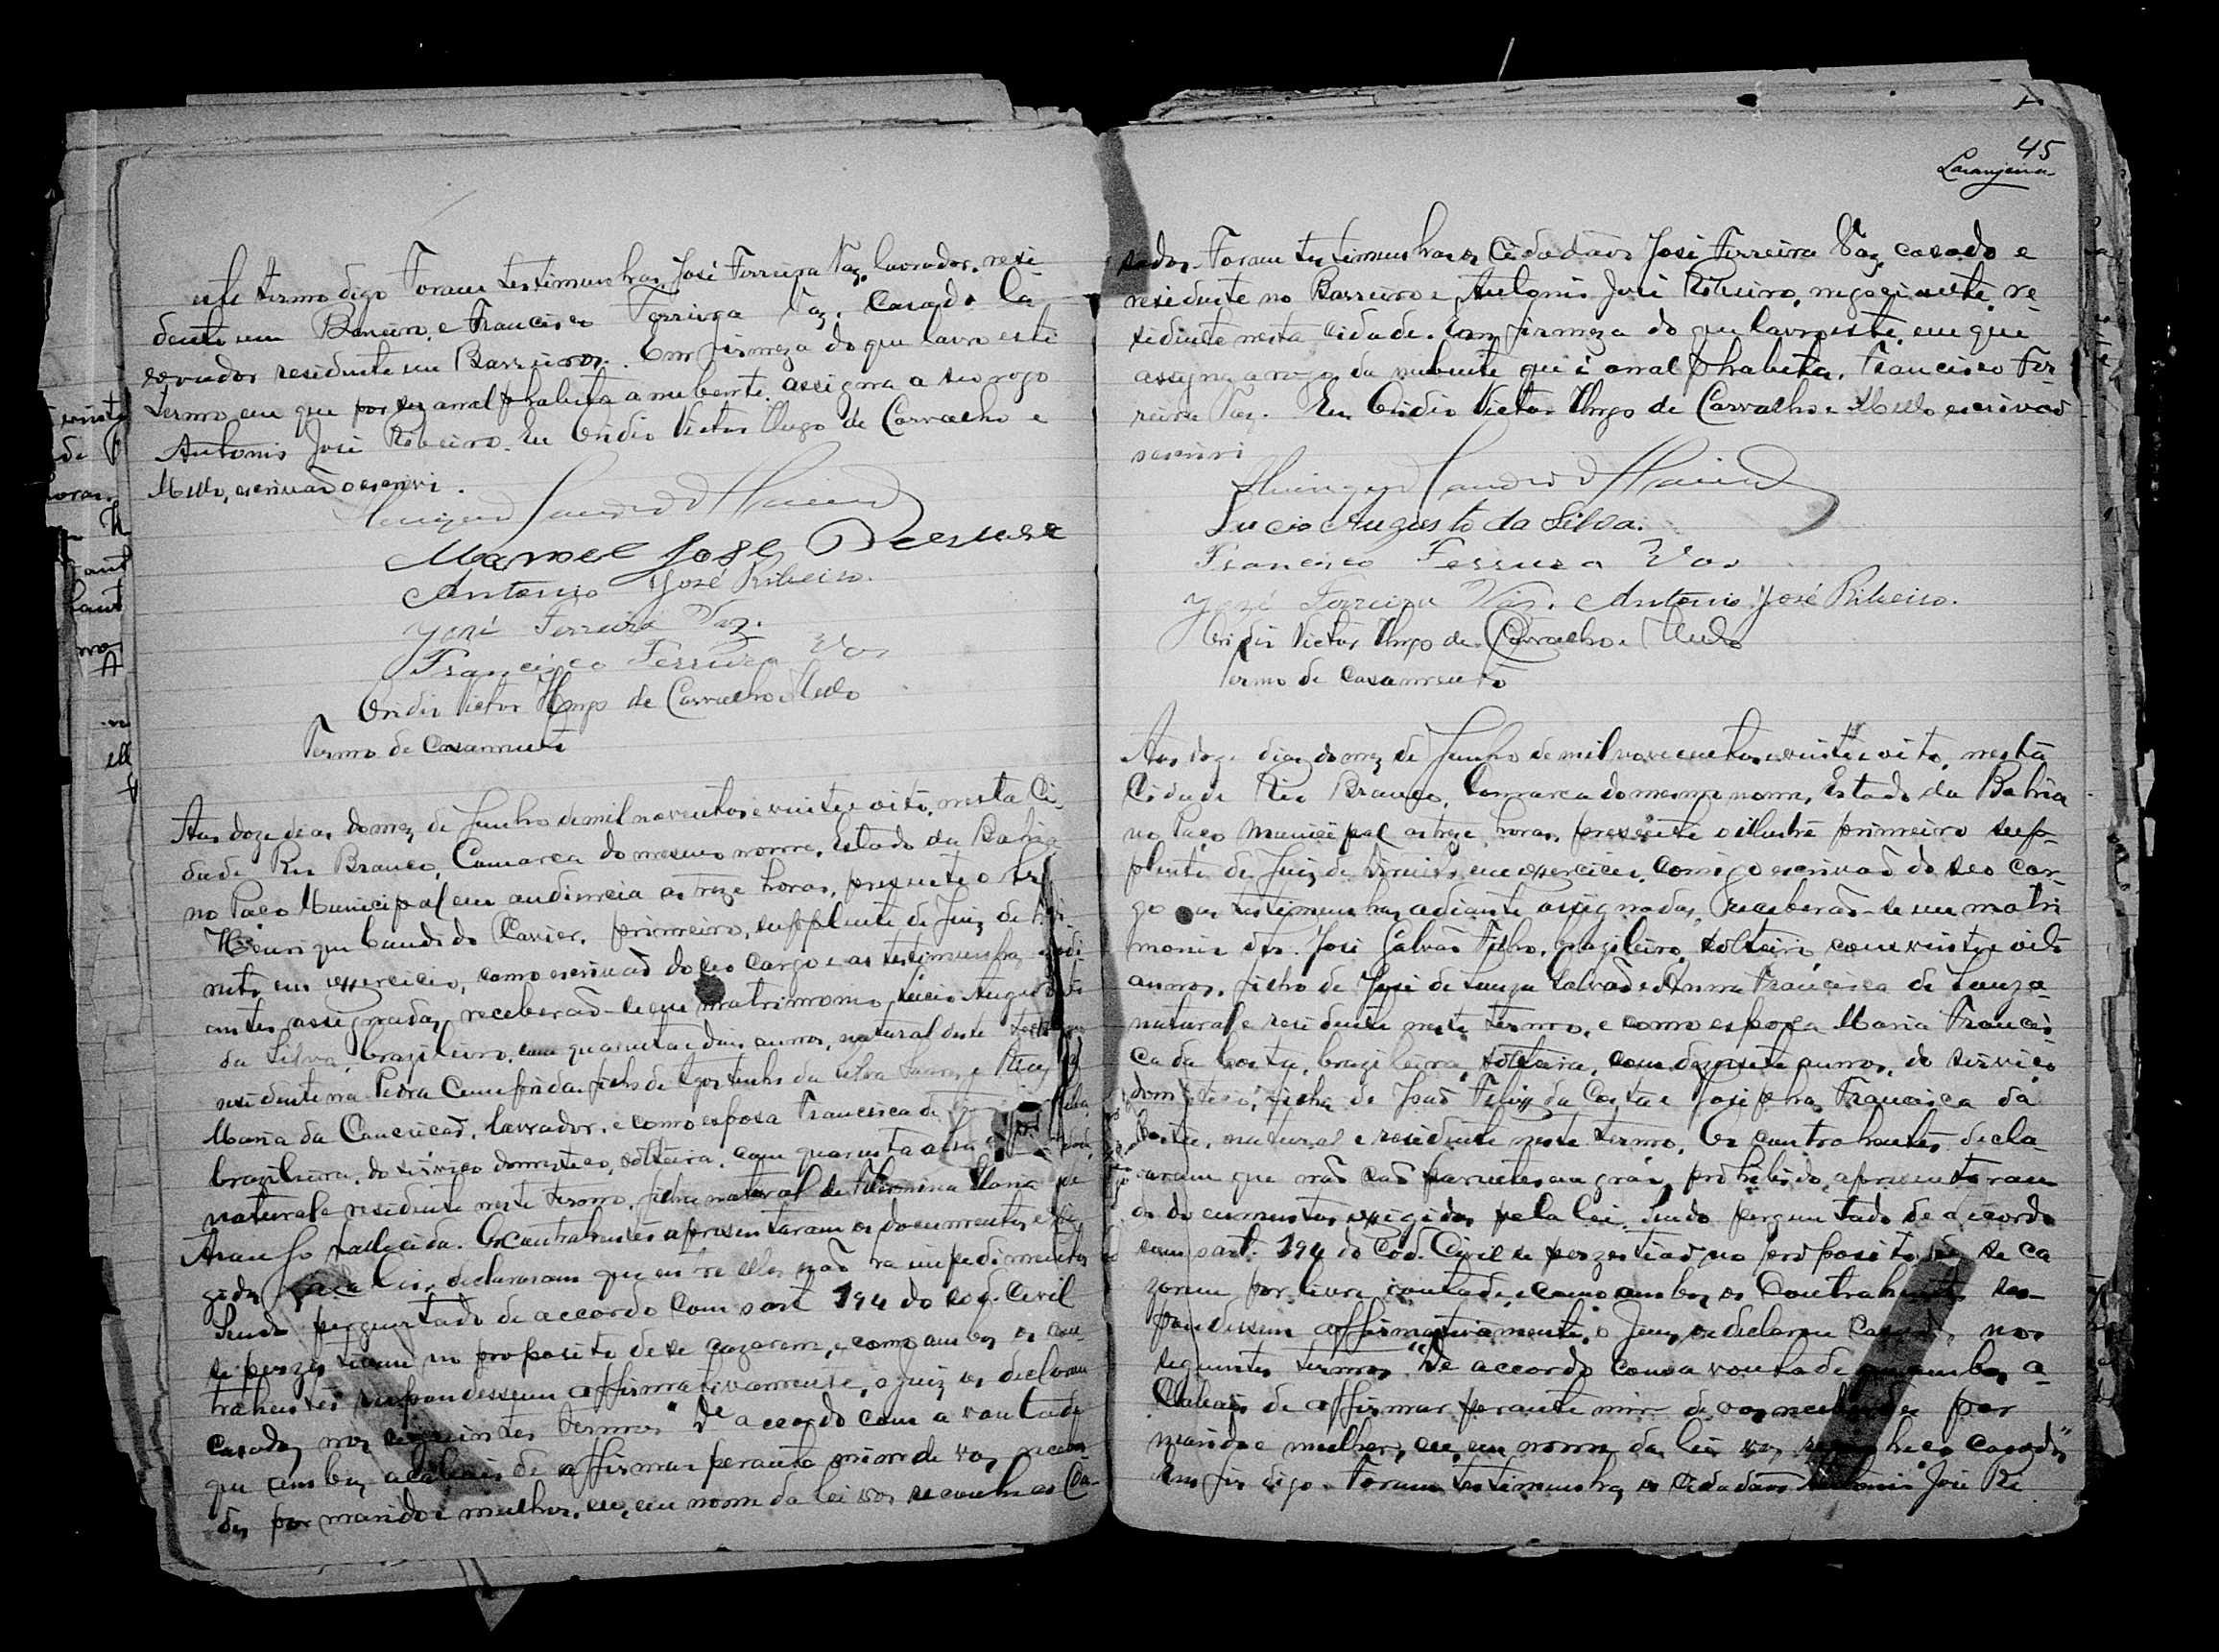 este termo digo Foram testimunhas, José Ferreira Vaz, lavrador, resi
dente em Barreiro, e Francisco Ferreira Vaz, Casado la
vrador residente em Barreiros. Em firmeza do que lavro este
termo em que por ser analphabeta a nubente, assigna a seo rogo
Antonio José Ribeiro. Eu Ovidio Victor Hugo de Carvalho e
Mello, escrivão o escrevi.
Manoel José
Antonio José Ribeiro.
José Ferreira Vaz.
Francisco Ferreira Vas
Ovidio Victor Hugo de Carvalho e Mello
Termo de Casamento
Aos doze dias do mez de Junho de mil noventos e vinte e oito, nesta Ci-
dade Rio Branco, Comarca do mesmo nome, Estado da Bahia
no Paço Municipal em audiencia as treze horas, presente o
Henrique Candido Xavier, primeiro, supplente de Juiz de Di
reito em exercicio, como escrivão do seo cargo e as testimunhas adi
antes assignadas, receberão-se em matrimonio, Lucio Augusto
da Silva, brazileiro, com quarenta e dois annos, natural deste
residente na Pedra Comprida, filho de Agostinho da Silva
Maria da Conceicão, lavrador, e como esposa Francisca de
brazileira, do serviço domestico, solteira, com quarenta
natural e residente neste termo, filha natural de Maria de
Araujo fallecida. Os Contrahentes apresentaram os documentos exi
gidos pela lei, declararam que entre elles não ha impedimentos
Sendo perguntado de accordo com o art 194 do cod. Civil
se persistem no proposito de se cazarem, e como ambos os con-
trahentes respondessem affirmativamente, o juiz os declarou
casados nos seguintes termos "De accordo com a vontade
que ambos acabais de affirmar perante mim de vos receber
des por marido e mulher, eu, em nome da lei vos reconheço Ca-
45
Laranjeira
sados. Foram testimunhas os Cidadãos José Ferreira Vaz, casado e
residente no Barreiro e Antonio José Ribeiro, negociante, re-
sidente nesta cidade. Em firmeza do que lavro este, em que
assigna a rogo da nubente que é analphabeta, Francisco Fer-
reira Vaz. Eu Ovidio Victor Hugo de Carvalho e Mello escrivão
o escrevi
Lucio Augusto da Silva.
Francisco Ferreira Vas
José Ferreira Vaz. Antonio José Ribeiro.
Ovidio Victor Hugo de Carvalho e Mello
Termo de Casamento
Aos doze dias do mez de Junho de mil novecentos e vinte e oito, nesta
Cidade Rio Branco, Comarca do mesmo nome, Estado da Bahia
no Paço Municipal as treze horas, presente o illustre primeiro sup-
plente de Juiz de Direito em exercicio, comigo escrivão do seo car-
go e as testimunhas adiante assignadas, receberão-se em matri
monio José Galvão Filho, brazileiro, solteiro, com vinte e oito
annos, filho de José de Souza Galvão e Anna Francisca de Souza
natural e residente neste termo, e como espoza Maria Francis-
ca da Costa, brazileira, solteira, com dezesete annos, do serviço
domestico, filha de João Felix da Costa e Josepha Francisca da
Costa, natural e residente neste termo. Os contrahentes decla-
raram que não são parentes em gráo prohibido, apresentaram
os documentos exigidos pela lei. Sendo perguntado de accordo
com o art. 194 do Cod. Civil se persistião no proposito de se ca
zarem por livre vontade, e como ambos os Contrahentes res-
pondessem affirmativamente, o Juiz os declarou Casados nos
seguintes termos "De accordo com a vontade que ambos a-
Cabais de affirmar perante mim de vos receberdes por
marido e mulher, eu, em nome da lei vos reconheço casados"
Em fir digo. Foram testimunhas os Cidadãos Antonio José Ri